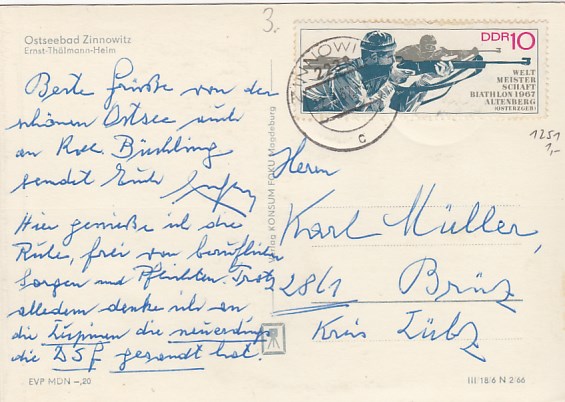 Ostseebad Zinnowitz
Ernst-Thälmann-Heim
3.-
DDR 10
WELT
MEISTER
SCHAFT
BIATHLON 1967
ALTENBERG
(OSTERZGEB)
ZINNOWI
c
1251
1,-
Beste Grüße von der
schönen Ostsee auch
an Koll. Büchling
sendet Euch
Hier genieße ich die
Ruhe, frei von beruflichen
Sorgen und Pflichten. Trotz
alledem denke ich an
die Lupinen die neuerdings
die DSG gesandt hat.
Verlag KONSUM FOKU Magdeburg
Herrn
Karl Müller,
2861 Brüz
Kreis Lübz
EVP MDN -,20
III 18/6 N 2/66